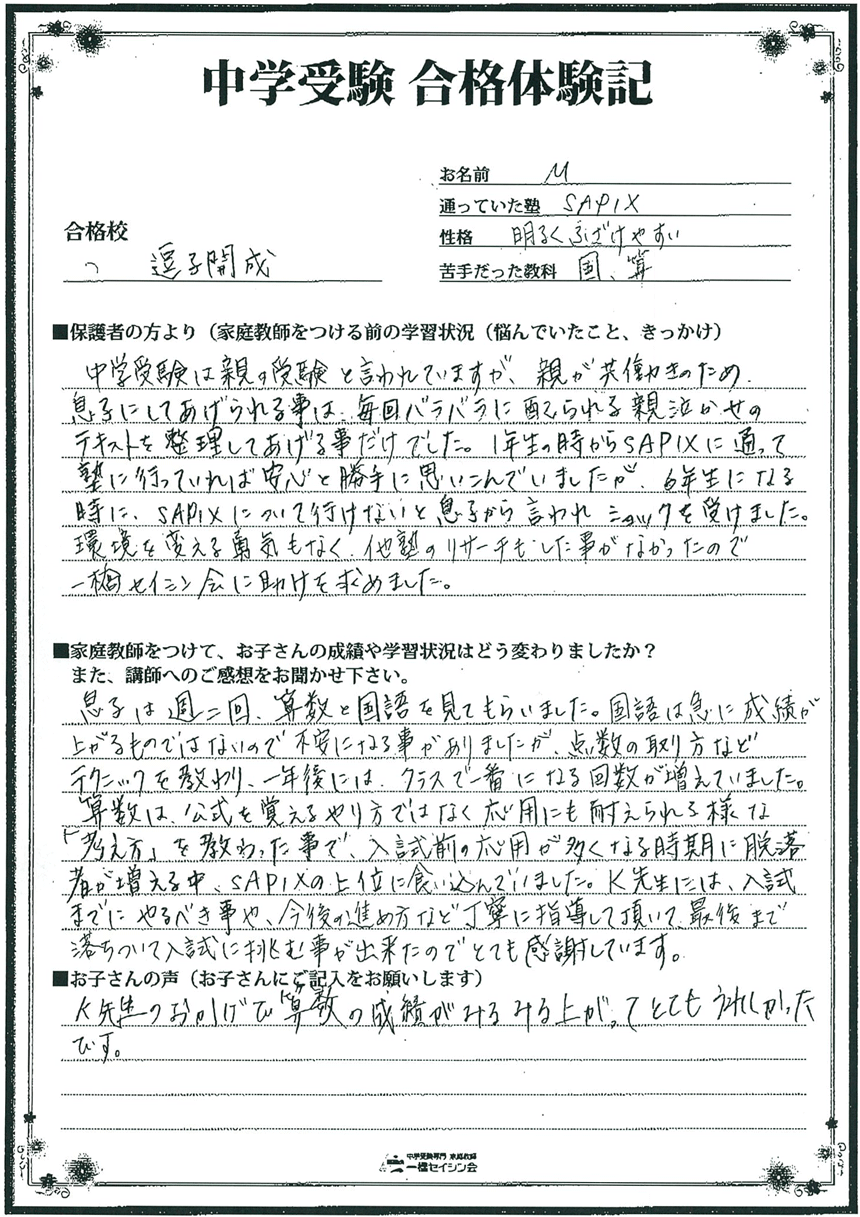 中学受験 合格体験記
お名前 M
通っていた塾 SAPIX
性格 明るくふざけやすい
苦手だった教科 国、算
合格校
逗子開成
■保護者の方より（家庭教師をつける前の学習状況（悩んでいたこと、きっかけ）
中学受験は親の受験と言われていますが、親が共働きのため
息子にしてあげられる事は、毎回バラバラに配られる親泣かせの
テキストを整理してあげる事だけでした。1年生の時からSAPIXに通って
塾に行っていれば安心と勝手に思いこんでいましたが、6年生になる
時に、SAPIXについて行けないと息子から言われショックを受けました。
環境を変える勇気もなく、他塾のリサーチもした事がなかったので
一橋セイシン会に助けを求めました。
■家庭教師をつけて、お子さんの成績や学習状況はどう変わりましたか？
また、講師へのご感想をお聞かせ下さい。
息子は週二回、算数と国語を見てもらいました。国語は急に成績が
上がるものではないので不安になる事がありましたが、点数の取り方など
テクニックを教わり、一年後には、クラスで一番になる回数が増えていました。
算数は、公式を覚えるやり方ではなく応用にも耐えられる様な
「考え方」を教わった事で、入試前の応用が多くなる時期に脱落
者が増える中、SAPIXの上位に食い込んでいました。K先生には、入試
までにやるべき事や、今後の進め方など丁寧に指導して頂いて、最後まで
落ちついて入試に挑む事が出来たのでとても感謝しています。
■お子さんの声（お子さんにご記入をお願いします）
K先生のおかげで算数の成績がみるみる上がってとてもうれしかった
です。
中学受験専門 家庭教師
一橋セイシン会